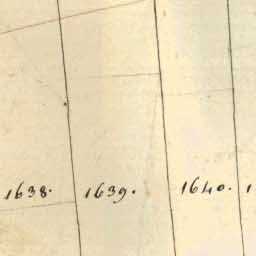 1638. 1639. 1640.